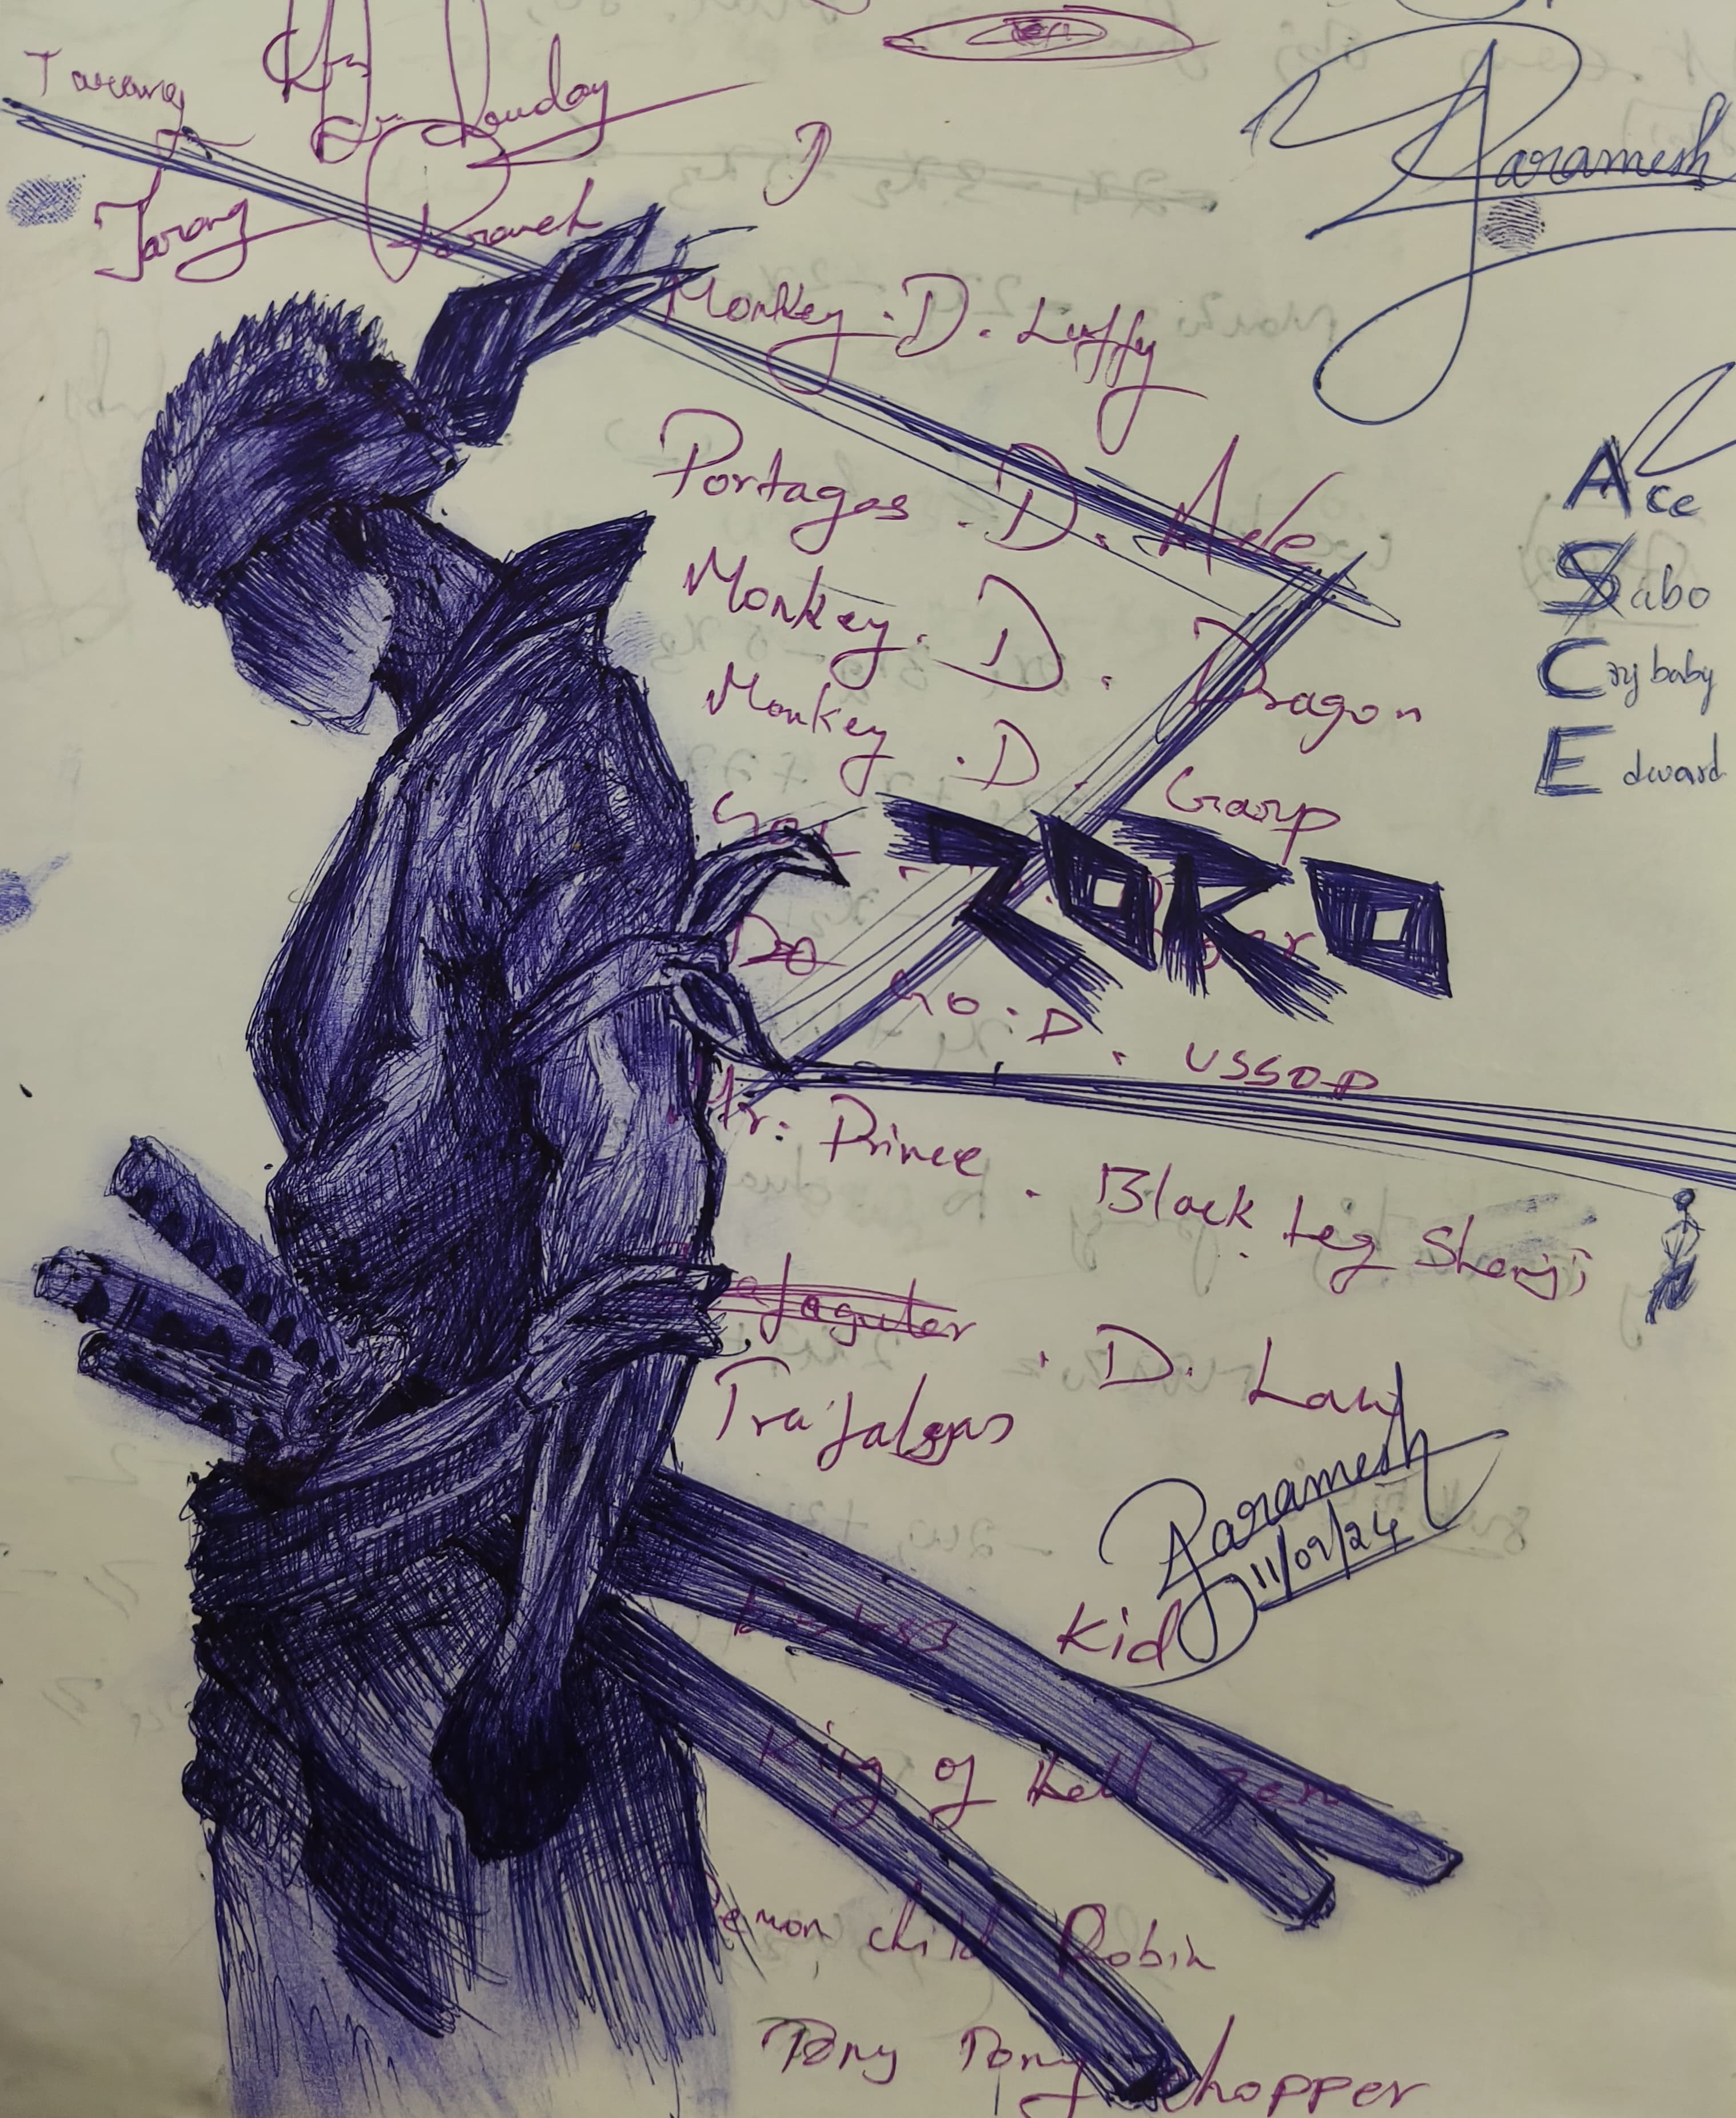 Tarang
Tarang
Paramesh
D
Paramesh
Monkey . D . Luffy
Portagas . D. Ace
Monkey . D . Dragon
Monkey . D . Garp
ZORO
Do
Go . D . USSOP
Mr: Prince . Black Leg Shenji
. D. Law
Trafalgas
Paramesh
11/02/24
Kid
King of Hell Zen
Demon child Robin
Tony Tony Chopper
Ace
Sabo
Cry baby
Edward